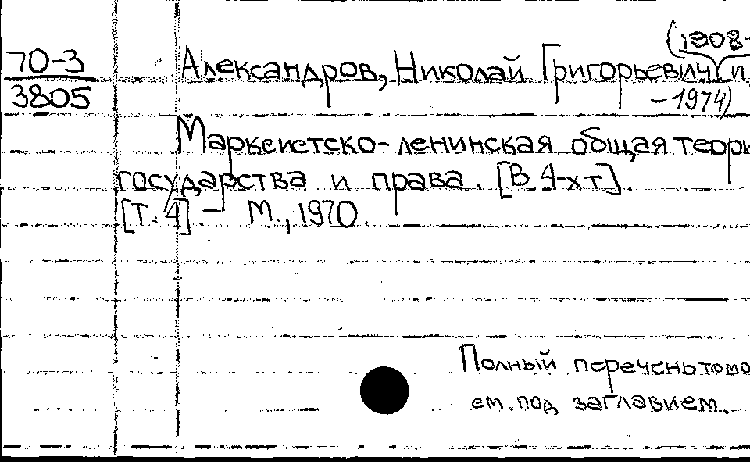 (1908-
70-3 Александров, Николай Григорьевич и
3805 -1974)
Марксистско-ленинская общая теори
государства и права. [В 4-х т].
[Т. 4] - М., 1970.
Полный перечень томо
см. под заглавием.